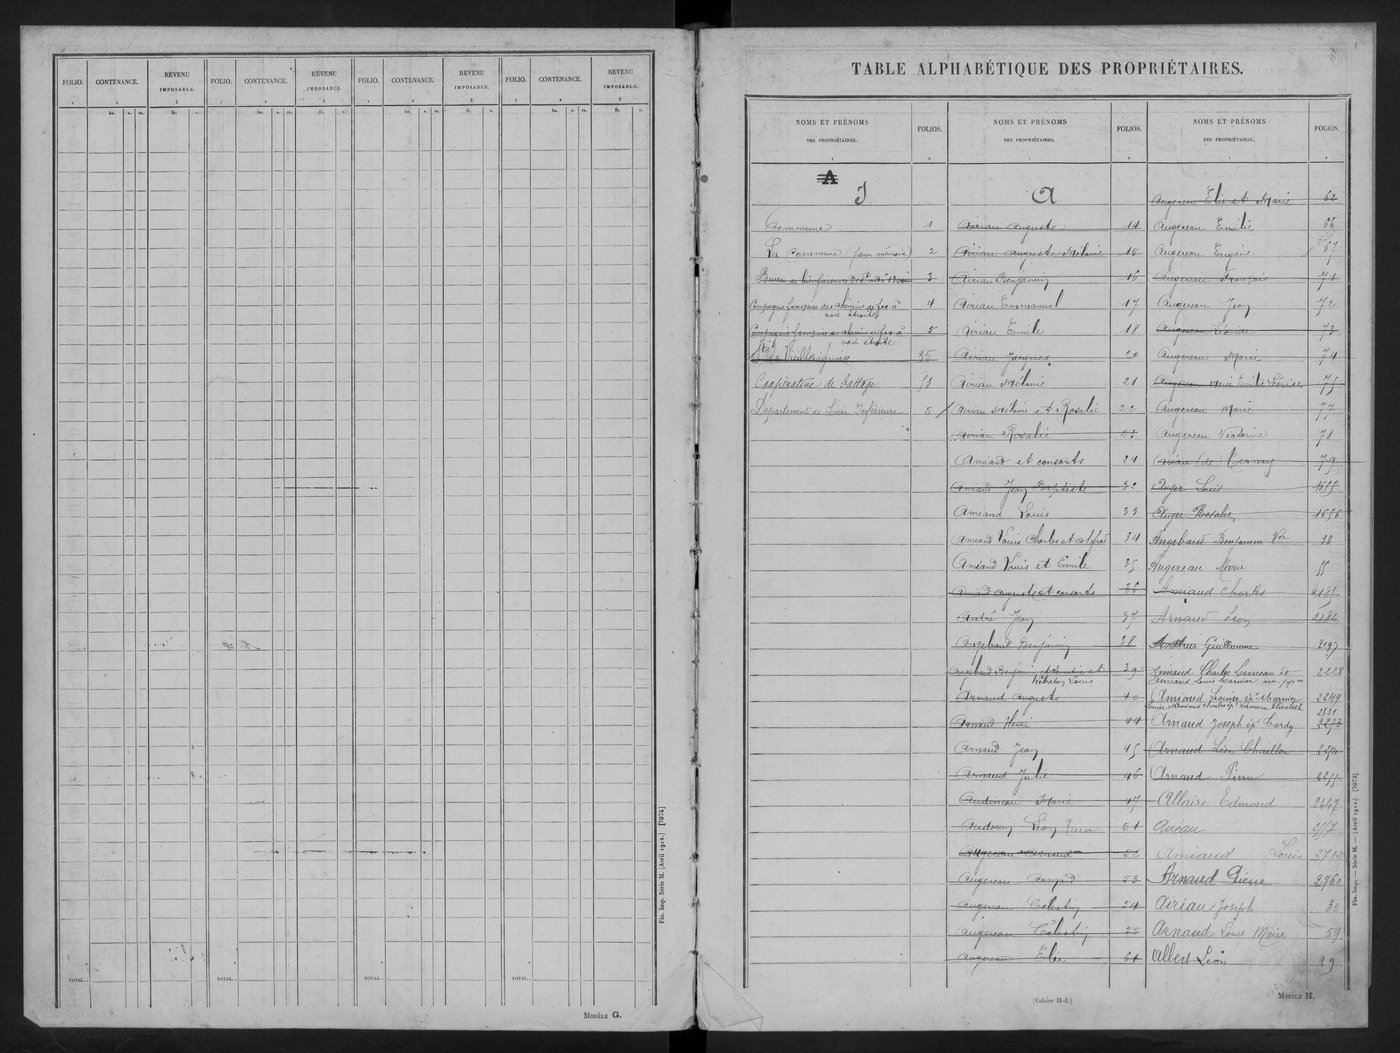 FOLIO. CONTENANCE. REVENU IMPOSABLE. FOLIO. CONTENANCE. REVENU IMPOSABLE. FOLIO. CONTENANCE. REVENU IMPOSABLE. FOLIO. CONTENANCE. REVENU IMPOSABLE.
1 2 3 1 2 3 1 2 3 1 2 3
ha. a. ca. fr. c. ha. a. ca. fr. c. ha. a. ca. fr. c. ha. a. ca. fr. c.
TOTAL. TOTAL. TOTAL. TOTAL.
Fin. Imp. Série M. (Avril 1912.) [7074]
MODÈLE G.
TABLE ALPHABÉTIQUE DES PROPRIÉTAIRES.
NOMS ET PRÉNOMS
DES PROPRIÉTAIRES.
FOLIOS.
A
J
Commune 1
La Commune (pour mémoire) 2
Bureau de bienfaisance 3
Compagnie française des chemins de fer à 4
voie étroite
Compagnie française des chemins de fer à 5
voie étroite
Vieillevigne 35
Coopérative de Battage 53
Département de Loire Inférieure 5
NOMS ET PRÉNOMS
DES PROPRIÉTAIRES.
FOLIOS.
A
Airiau Auguste 14
Airiau Auguste Mélanie 15
Airiau Benjamin 16
Airiau Emmanuel 17
Airiau Emile 18
Airiau Jacques 20
Airiau Mélanie 21
Airiau Mélanie et Rosalie 22
Airiau Rosalie
Amiand et consorts 24
Amiand Jean Baptiste 32
Amiand Louis 33
Amiand Louis Charles et Alfred 34
Amiand Louis et Emile 35
Amiand Auguste et consorts 36
André Jean 37
Angebaud Benjamin 38
Angebaud Benjamin 39
Louis
Arnaud Auguste 40
Arnaud Henri 44
Arnaud Jean 45
Arnaud Julie 46
Audineau Marie 47
Audouin Léon 51
Augereau Armand 52
Augereau Armand 53
Augereau Célestin 54
Augereau Célestin 55
Augereau Elie 61
NOMS ET PRÉNOMS
DES PROPRIÉTAIRES.
FOLIOS.
Augereau Elie et Marie 62
Augereau Emilie 66
Augereau Eugène 67
Augereau François 71
Augereau Jean 72
Augereau Léonide 73
Augereau Marie 74
Augereau Marie Emilie Léonise 75
Augereau Marie 77
Augereau Victorine 78
Airiau (de) Ternay 79
Auger Louis 1655
Auger Rosalie 1656
Angebaud Benjamin Vve 38
Augereau Marie 55
Arnaud Charles 2185
Arnaud Léon 2186
Guillaume 2197
Amiaud Charles Luneau et 2228
Amiaud Louis
Amiaud Louise ép. Marnier 2249
2531
Arnaud Joseph ép. Hardy 2253
Arnaud Léon Chaillou 2254
Arnaud Pierre 2255
Allaire Edmond 2447
Airéau 2577
Amiaud Louis 2710
Arnaud Pierre 2760
Airiau Joseph 30
Arnaud Louis Marie 59
Albert Léon 29
(Cahier H-I.)
MODÈLE H.
Fin. Imp. — Série M. — (Avril 1912.) [7073]